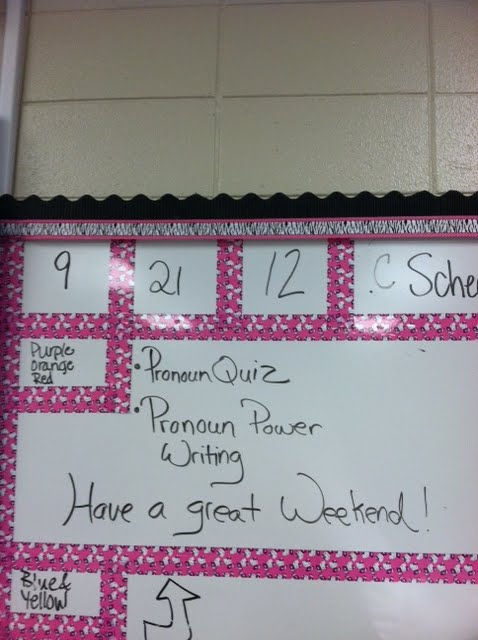 9 21 12 C Sche
Purple
Orange
Red
• Pronoun Quiz
• Pronoun Power
Writing
Have a great Weekend!
Blue &
Yellow